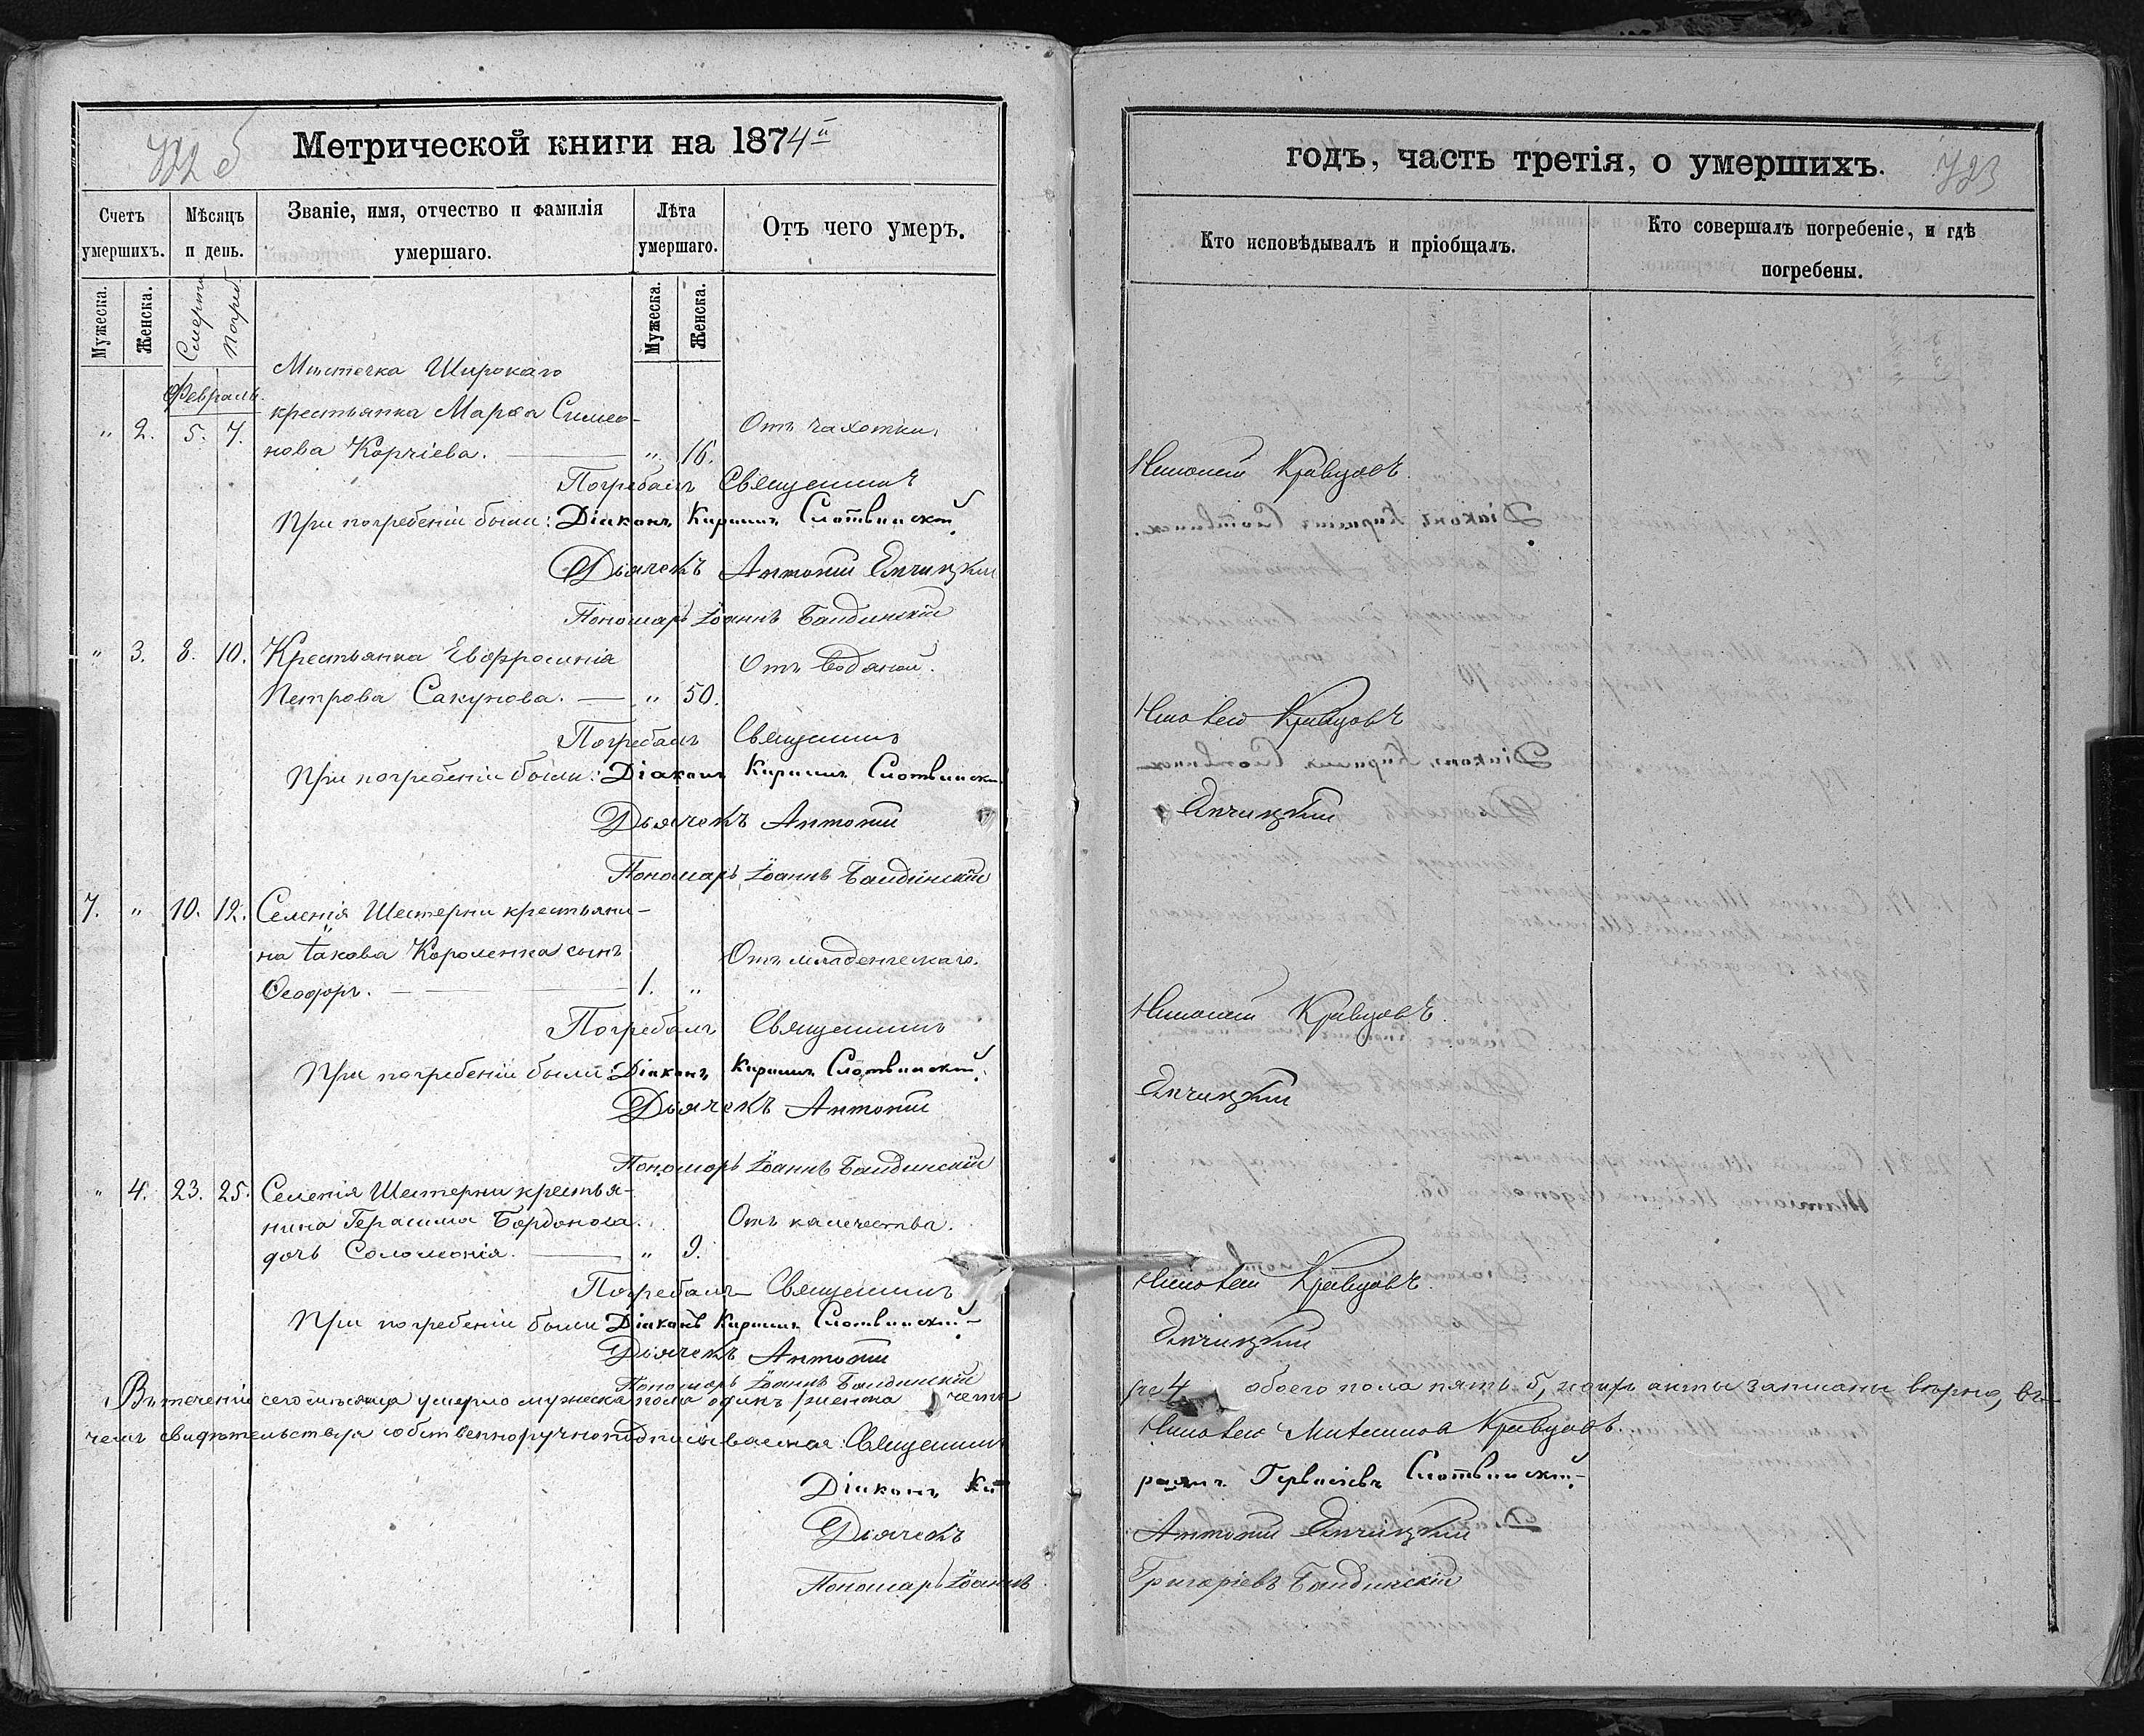 722 б
Метрической книги на 1874й
Счетъ умершихъ.
Мѣсяцъ и день.
Званіе, имя, отчество и фамилія умершаго.
Лѣта умершаго.
Отъ чего умеръ.
Мужеска.
Женска.
Смерти
Погреб.
Мужеска.
Женска.
Февраль.
Мѣстечка Широкаго
крестьянка Марѳа Симео-
" 2. 5. 7. нова Корчіева. — " 16. Отъ чахотки.
Погребалъ Священникъ
При погребеніи были: Діаконъ Кириллъ Слотвинскій.
Дьячекъ Антоній Епчицкій
Пономарь Іоаннъ Бандинскій
" 3. 8. 10. Крестьянка Евфросинія Отъ водяной.
Петрова Сакунова. — " 50.
Погребалъ Священникъ
При погребеніи были: Діаконъ Кириллъ Слотвинскій
Дьячекъ Антоній
Пономарь Іоаннъ Бандинскій
7. " 10. 12. Селенія Шестерни крестьяни-
на Іакова Короленка сынъ Отъ младенческаго.
Ѳеодоръ. — 1. "
Погребалъ Священникъ
При погребеніи были: Діаконъ Кириллъ Слотвинскій.
Дьячекъ Антоній
Пономарь Іоаннъ Бандинскій
" 4. 23. 25. Селенія Шестерни крестья-
нина Герасима Бордонова Отъ калечества.
дочь Соломонія. — " 9.
Погребалъ Священникъ
При погребеніи были Діаконъ Кириллъ Слотвинскій
Дьячекъ Антоній
Пономарь Іоаннъ Бандинскій
Въ теченіи сего мѣсяца умерло мужеска пола одинъ, женска четы
чемъ свидѣтельствуя собственноручно подписываемся: Священникъ
Діаконъ Ки
Дьячекъ
Пономарь Іоаннъ
годъ, часть третія, о умершихъ.
723
Кто исповѣдывалъ и пріобщалъ.
Кто совершалъ погребеніе, и гдѣ погребены.
Кравцовъ.
Кравцовъ
Епчицкій
Кравцовъ.
Епчицкій
Кравцовъ.
Епчицкій
ре 4, обоего пола пять 5, акты записаны вѣрно, въ
Кравцовъ.
риллъ Гервасіевъ Слотвинскій
Антоній Епчицкій
Григоріевъ Бандинскій